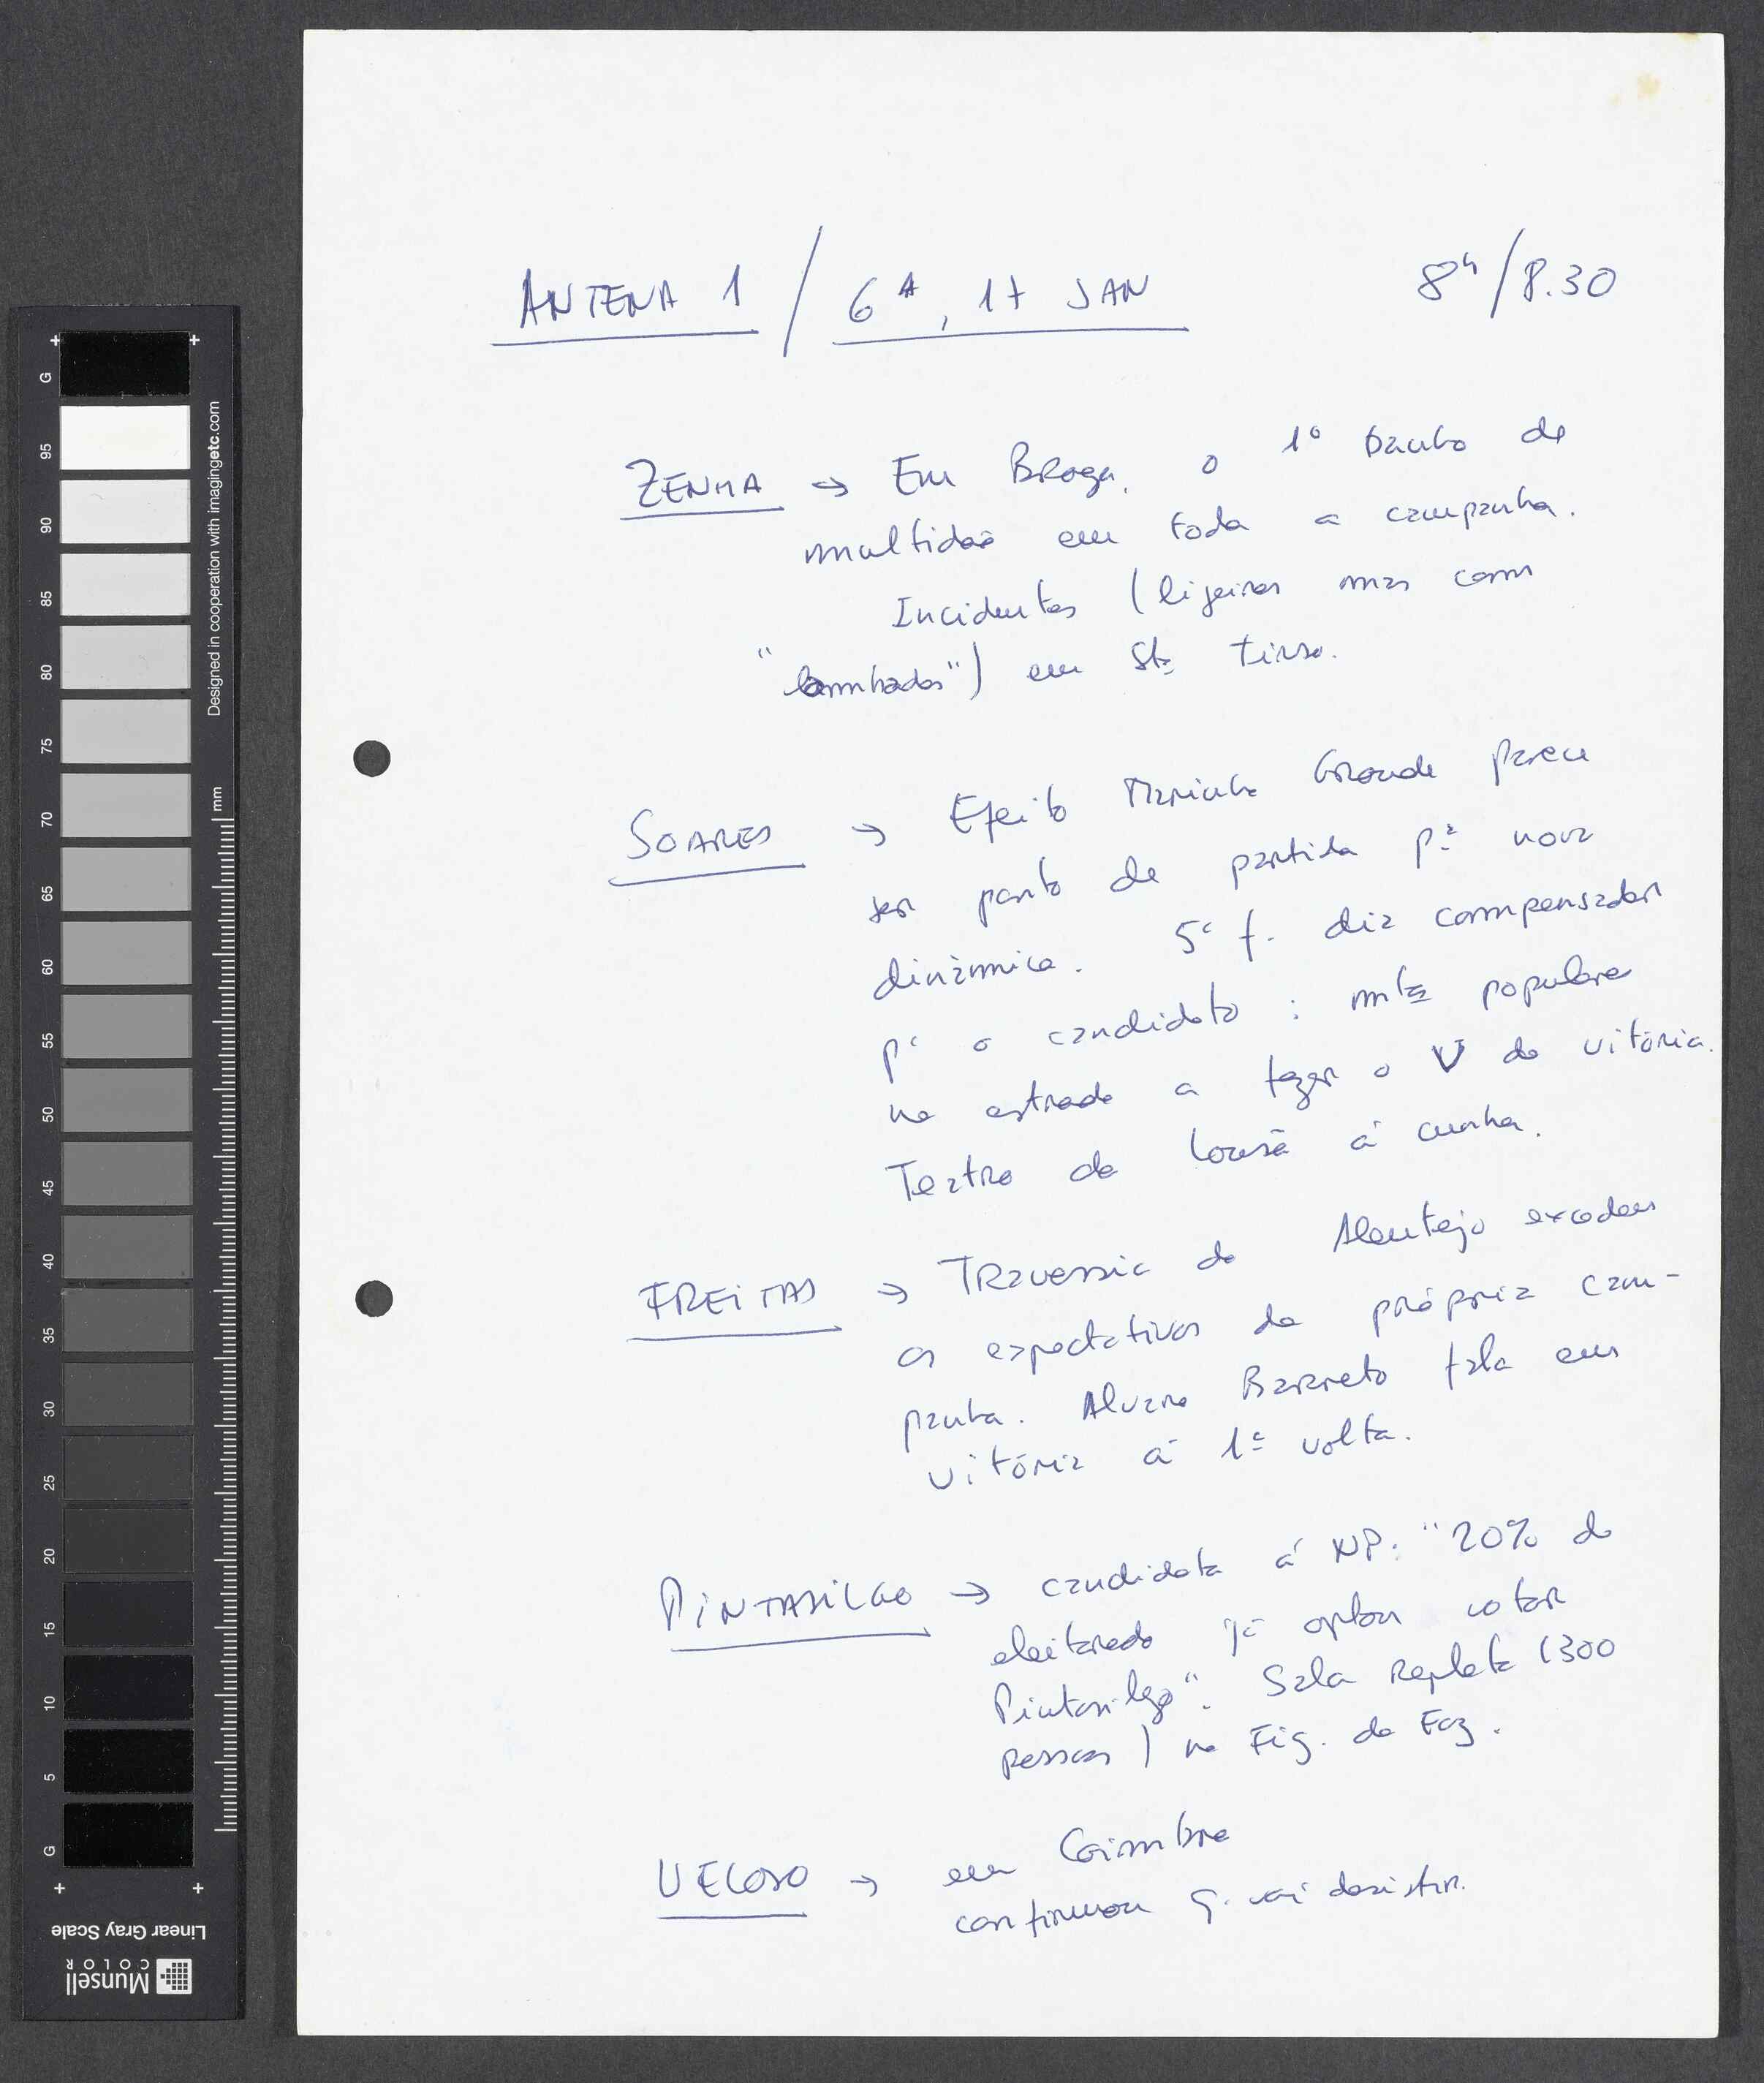 ANTENA 1 / 6ª, 17 JAN 8h/8.30
ZENHA → Em Braga, o 1º banho de
multidão em toda a campanha.
Incidentes (ligeiros mas com
"bombados") em Stº Tirso.
SOARES → Efeito Marinha Grande parece
ser ponto de partida pª nova
dinâmica. 5ª f. dia compensador
pª o candidato: mtºs populares
na estrada a fazer o V da vitória.
Teatro da Lousã à cunha.
FREITAS → Travessia do Alentejo excedeu
as expectativas da própria cam-
panha. Alvaro Barreto fala em
vitória à 1ª volta.
PINTASILGO → candidata à NP: "20% do
eleitorado já optou votar
Pintasilgo". Sala repleta (300
pessoas) na Fig. da Foz.
VELOSO → em Coimbra
confirmou q. vai desistir.
G 95 90 85 80 75 70 65 60 55 50 45 40 35 30 25 20 15 10 5 G
Designed in cooperation with imagingetc.com
mm
Linear Gray Scale
Munsell
COLOR